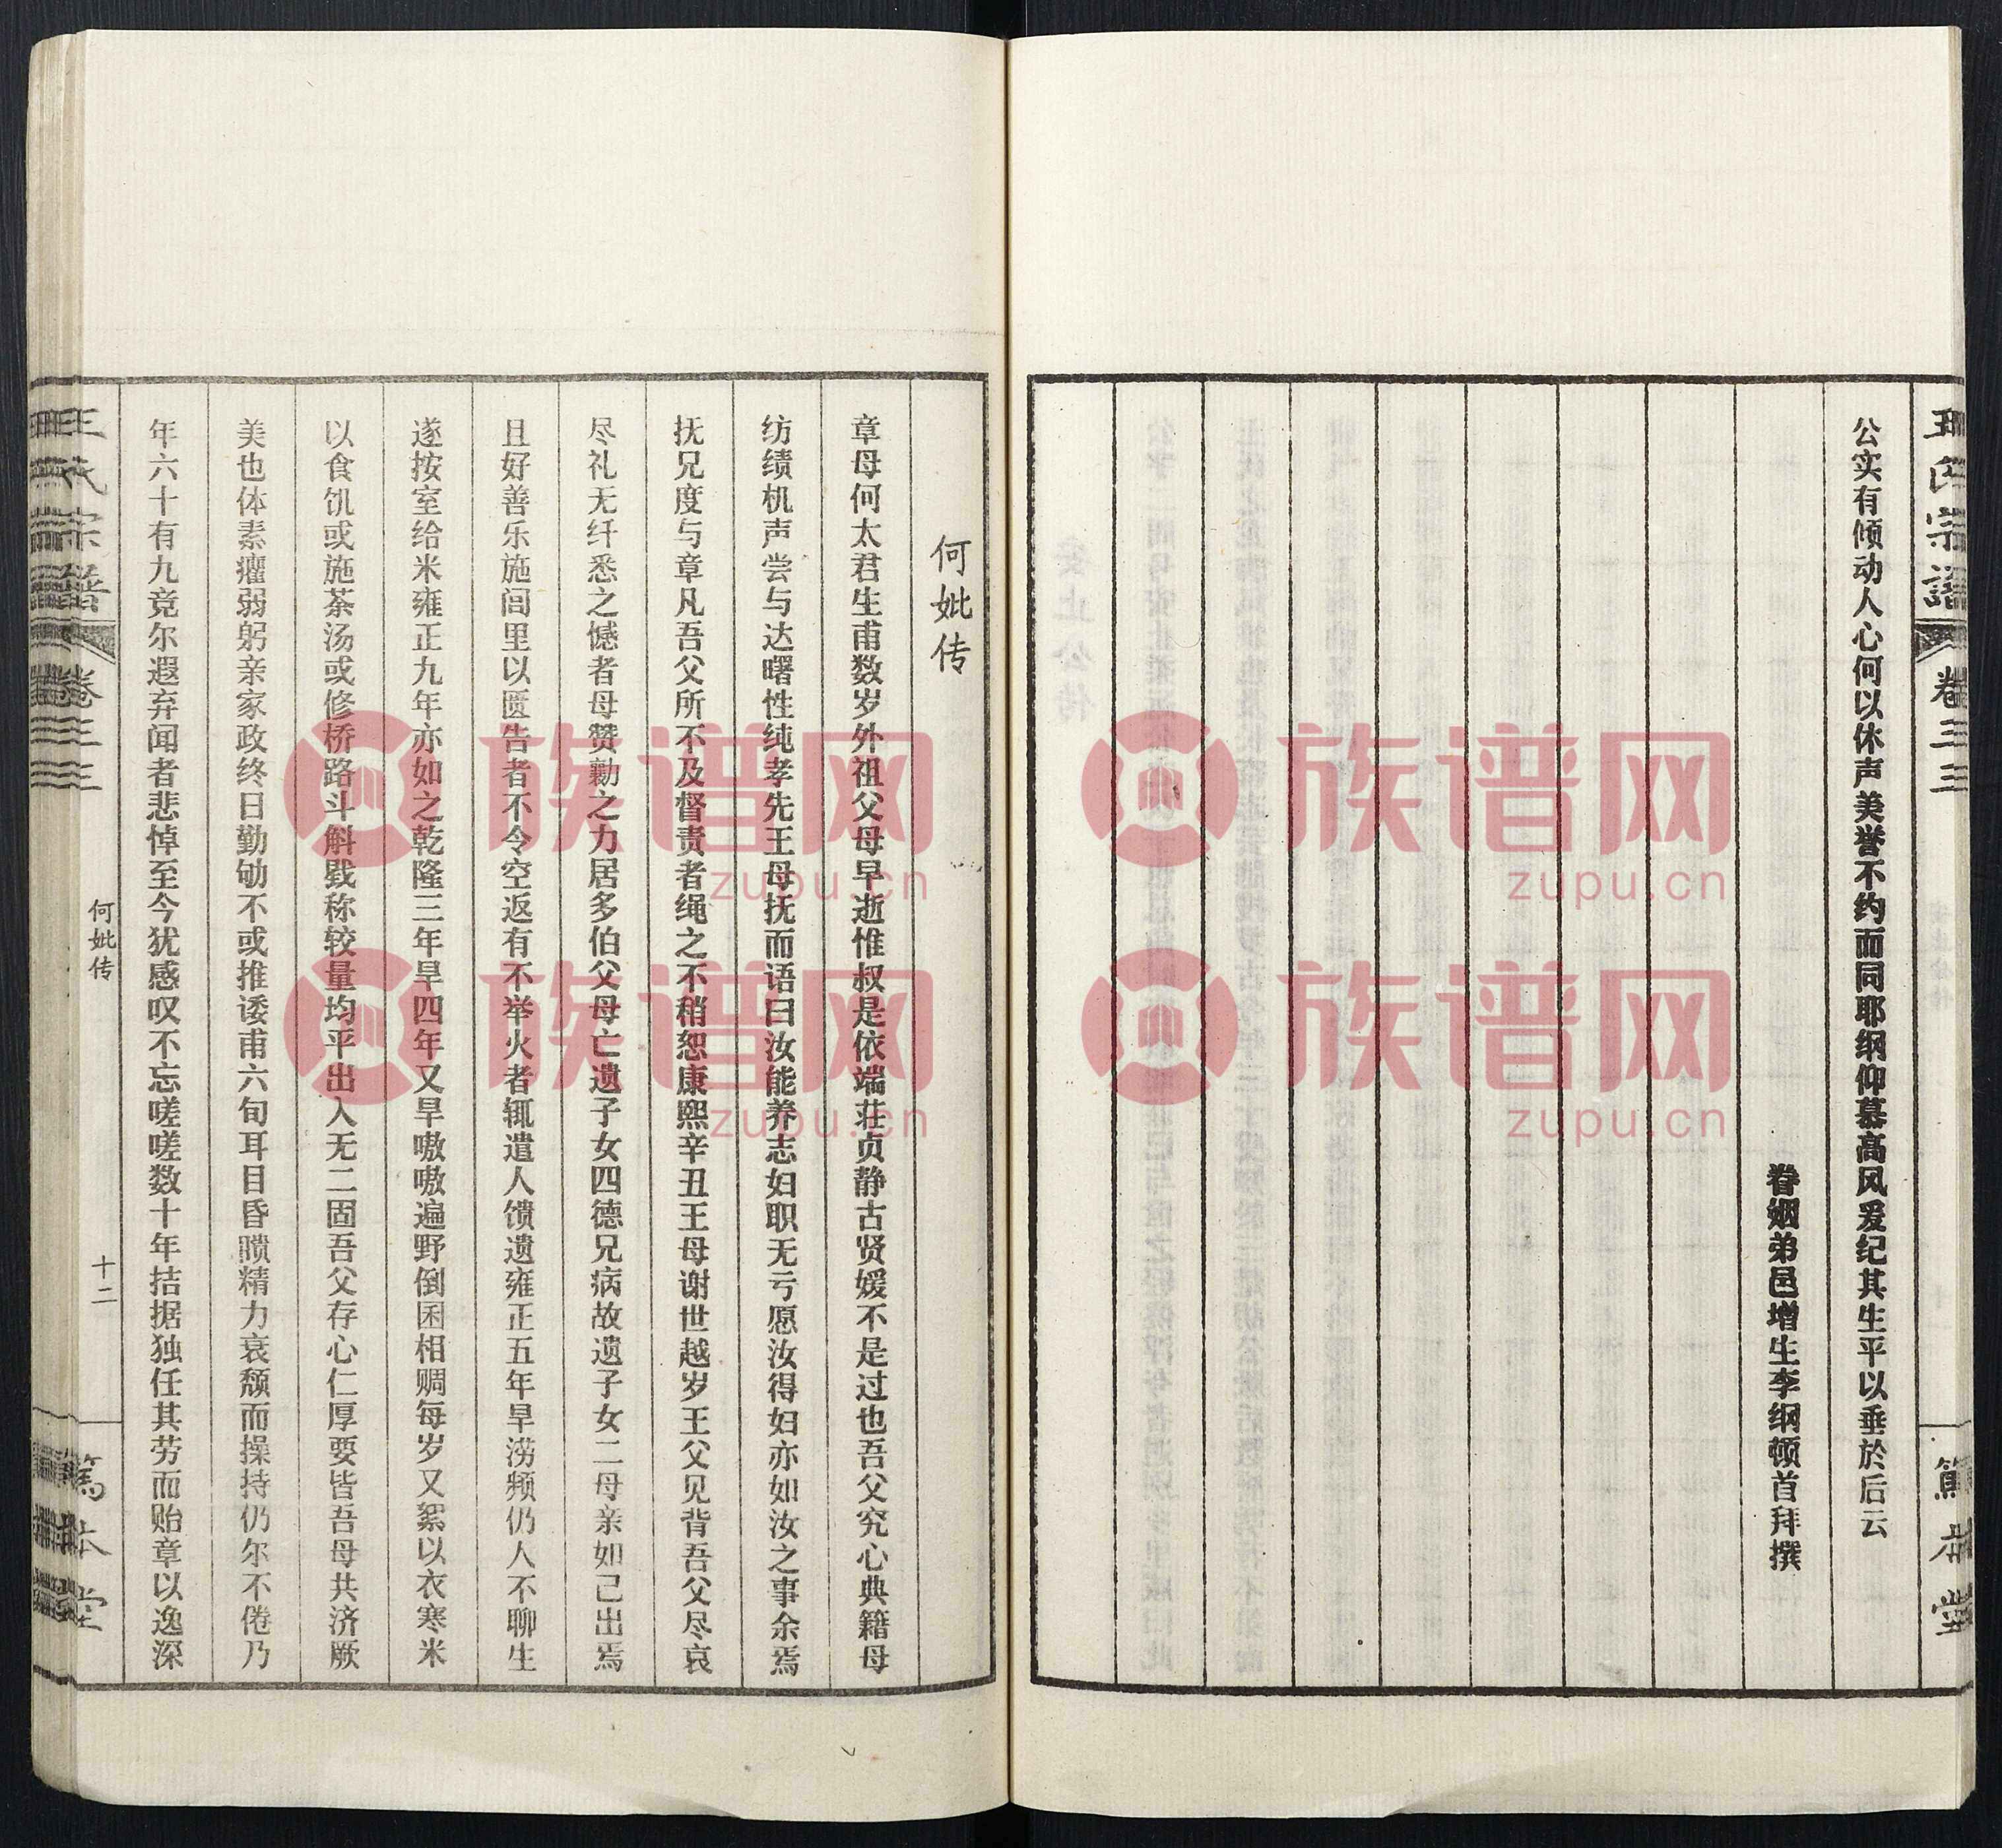 王氏宗谱
卷三三
笃本堂
公实有倾动人心何以休声美誉不约而同耶纲仰慕高风爰纪其生平以垂於后云
眷姻弟邑增生李纲顿首拜撰
何妣传
章母何太君生甫数岁外祖父母早逝惟叔是依端荘贞静古贤媛不是过也吾父究心典籍母
纺绩机声尝与达曙性纯孝先王母抚而语曰汝能养志妇职无亏愿汝得妇亦如汝之事余焉
抚兄度与章凡吾父所不及督责者绳之不稍恕康熙辛丑王母谢世越岁王父见背吾父尽哀
尽礼无纤悉之憾者母赞勷之力居多伯父母亡遗子女四德兄病故遗子女二母亲如己出焉
且好善乐施闾里以匮告者不令空返有不举火者辄遣人馈遗雍正五年旱涝频仍人不聊生
遂按室给米雍正九年亦如之乾隆三年旱四年又旱嗷嗷遍野倒困相赒每岁又絮以衣寒米
以食饥或施茶汤或修桥路斗斛戥称较量均平出入无二固吾父存心仁厚要皆吾母共济厥
美也体素癯弱躬亲家政终日勤劬不或推诿甫六旬耳目昏瞆精力衰颓而操持仍尔不倦乃
年六十有九竞尔遐弃闻者悲悼至今犹感叹不忘嗟嗟数十年拮据独任其劳而贻章以逸深
王氏宗谱
卷三三
何妣传
十二
笃本堂
族谱网
zupu.cn
族谱网
zupu.cn
族谱网
zupu.cn
族谱网
zupu.cn